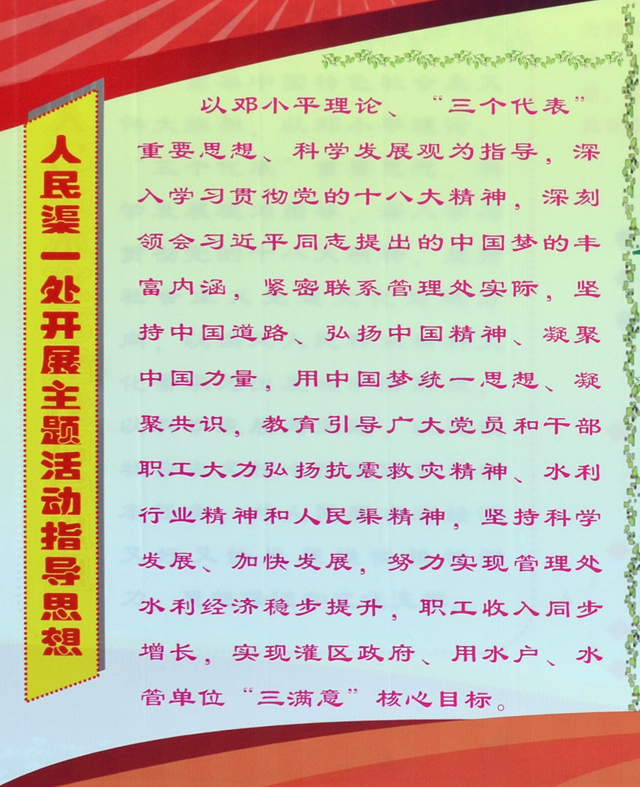 人民渠一处开展主题活动指导思想
以邓小平理论、“三个代表”
重要思想、科学发展观为指导，深
入学习贯彻党的十八大精神，深刻
领会习近平同志提出的中国梦的丰
富内涵，紧密联系管理处实际，坚
持中国道路、弘扬中国精神、凝聚
中国力量，用中国梦统一思想、凝
聚共识，教育引导广大党员和干部
职工大力弘扬抗震救灾精神、水利
行业精神和人民渠精神，坚持科学
发展、加快发展，努力实现管理处
水利经济稳步提升，职工收入同步
增长，实现灌区政府、用水户、水
管单位“三满意”核心目标。